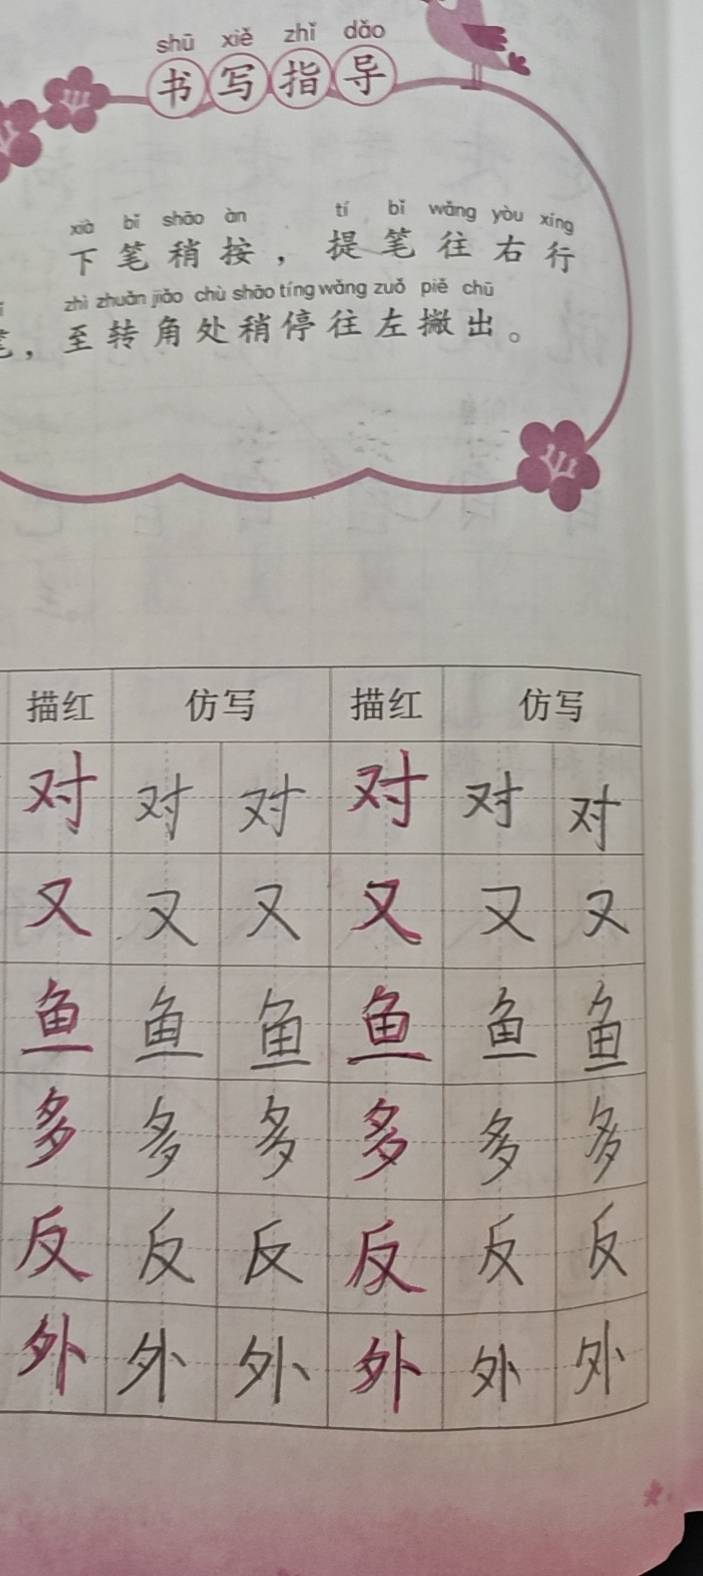 shū xiě zhǐ dǎo
书写指导
xià bǐ shāo àn tí bǐ wǎng yòu xíng
下笔稍按，提笔往右行
zhì zhuǎn jiǎo chù shāo tíng wǎng zuǒ piě chū
，至转角处稍停往左撇出。
描红 仿写 描红 仿写
对 对 对 对 对 对
又 又 又 又 又 又
鱼 鱼 鱼 鱼 鱼 鱼
多 多 多 多 多 多
反 反 反 反 反 反
外 外 外 外 外 外